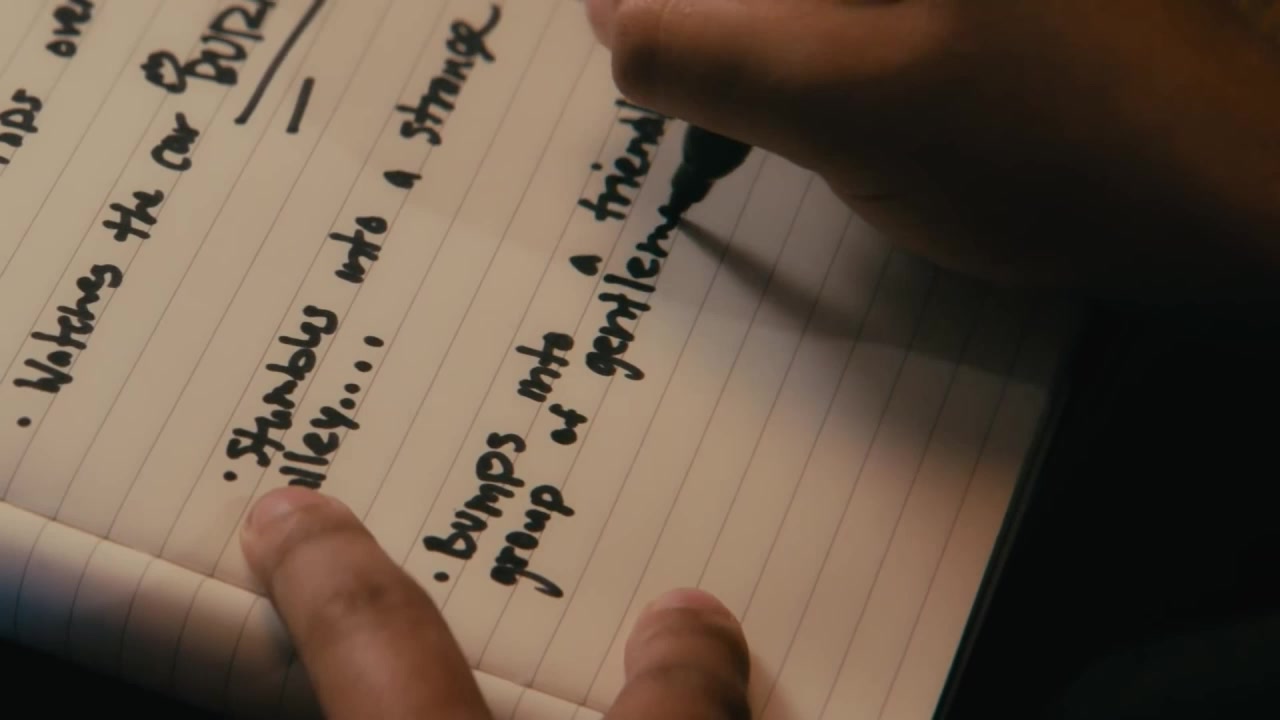 over
• Watches the car
• Stumbles into a strange
alley....
• Bumps into a friend
group of gentlem